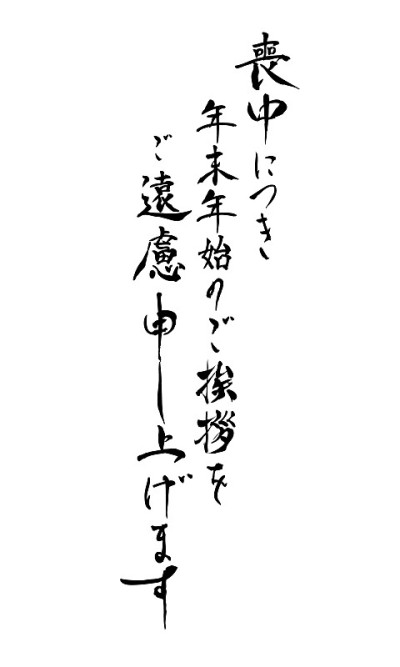 喪中につき
年末年始のご挨拶を
ご遠慮申し上げます